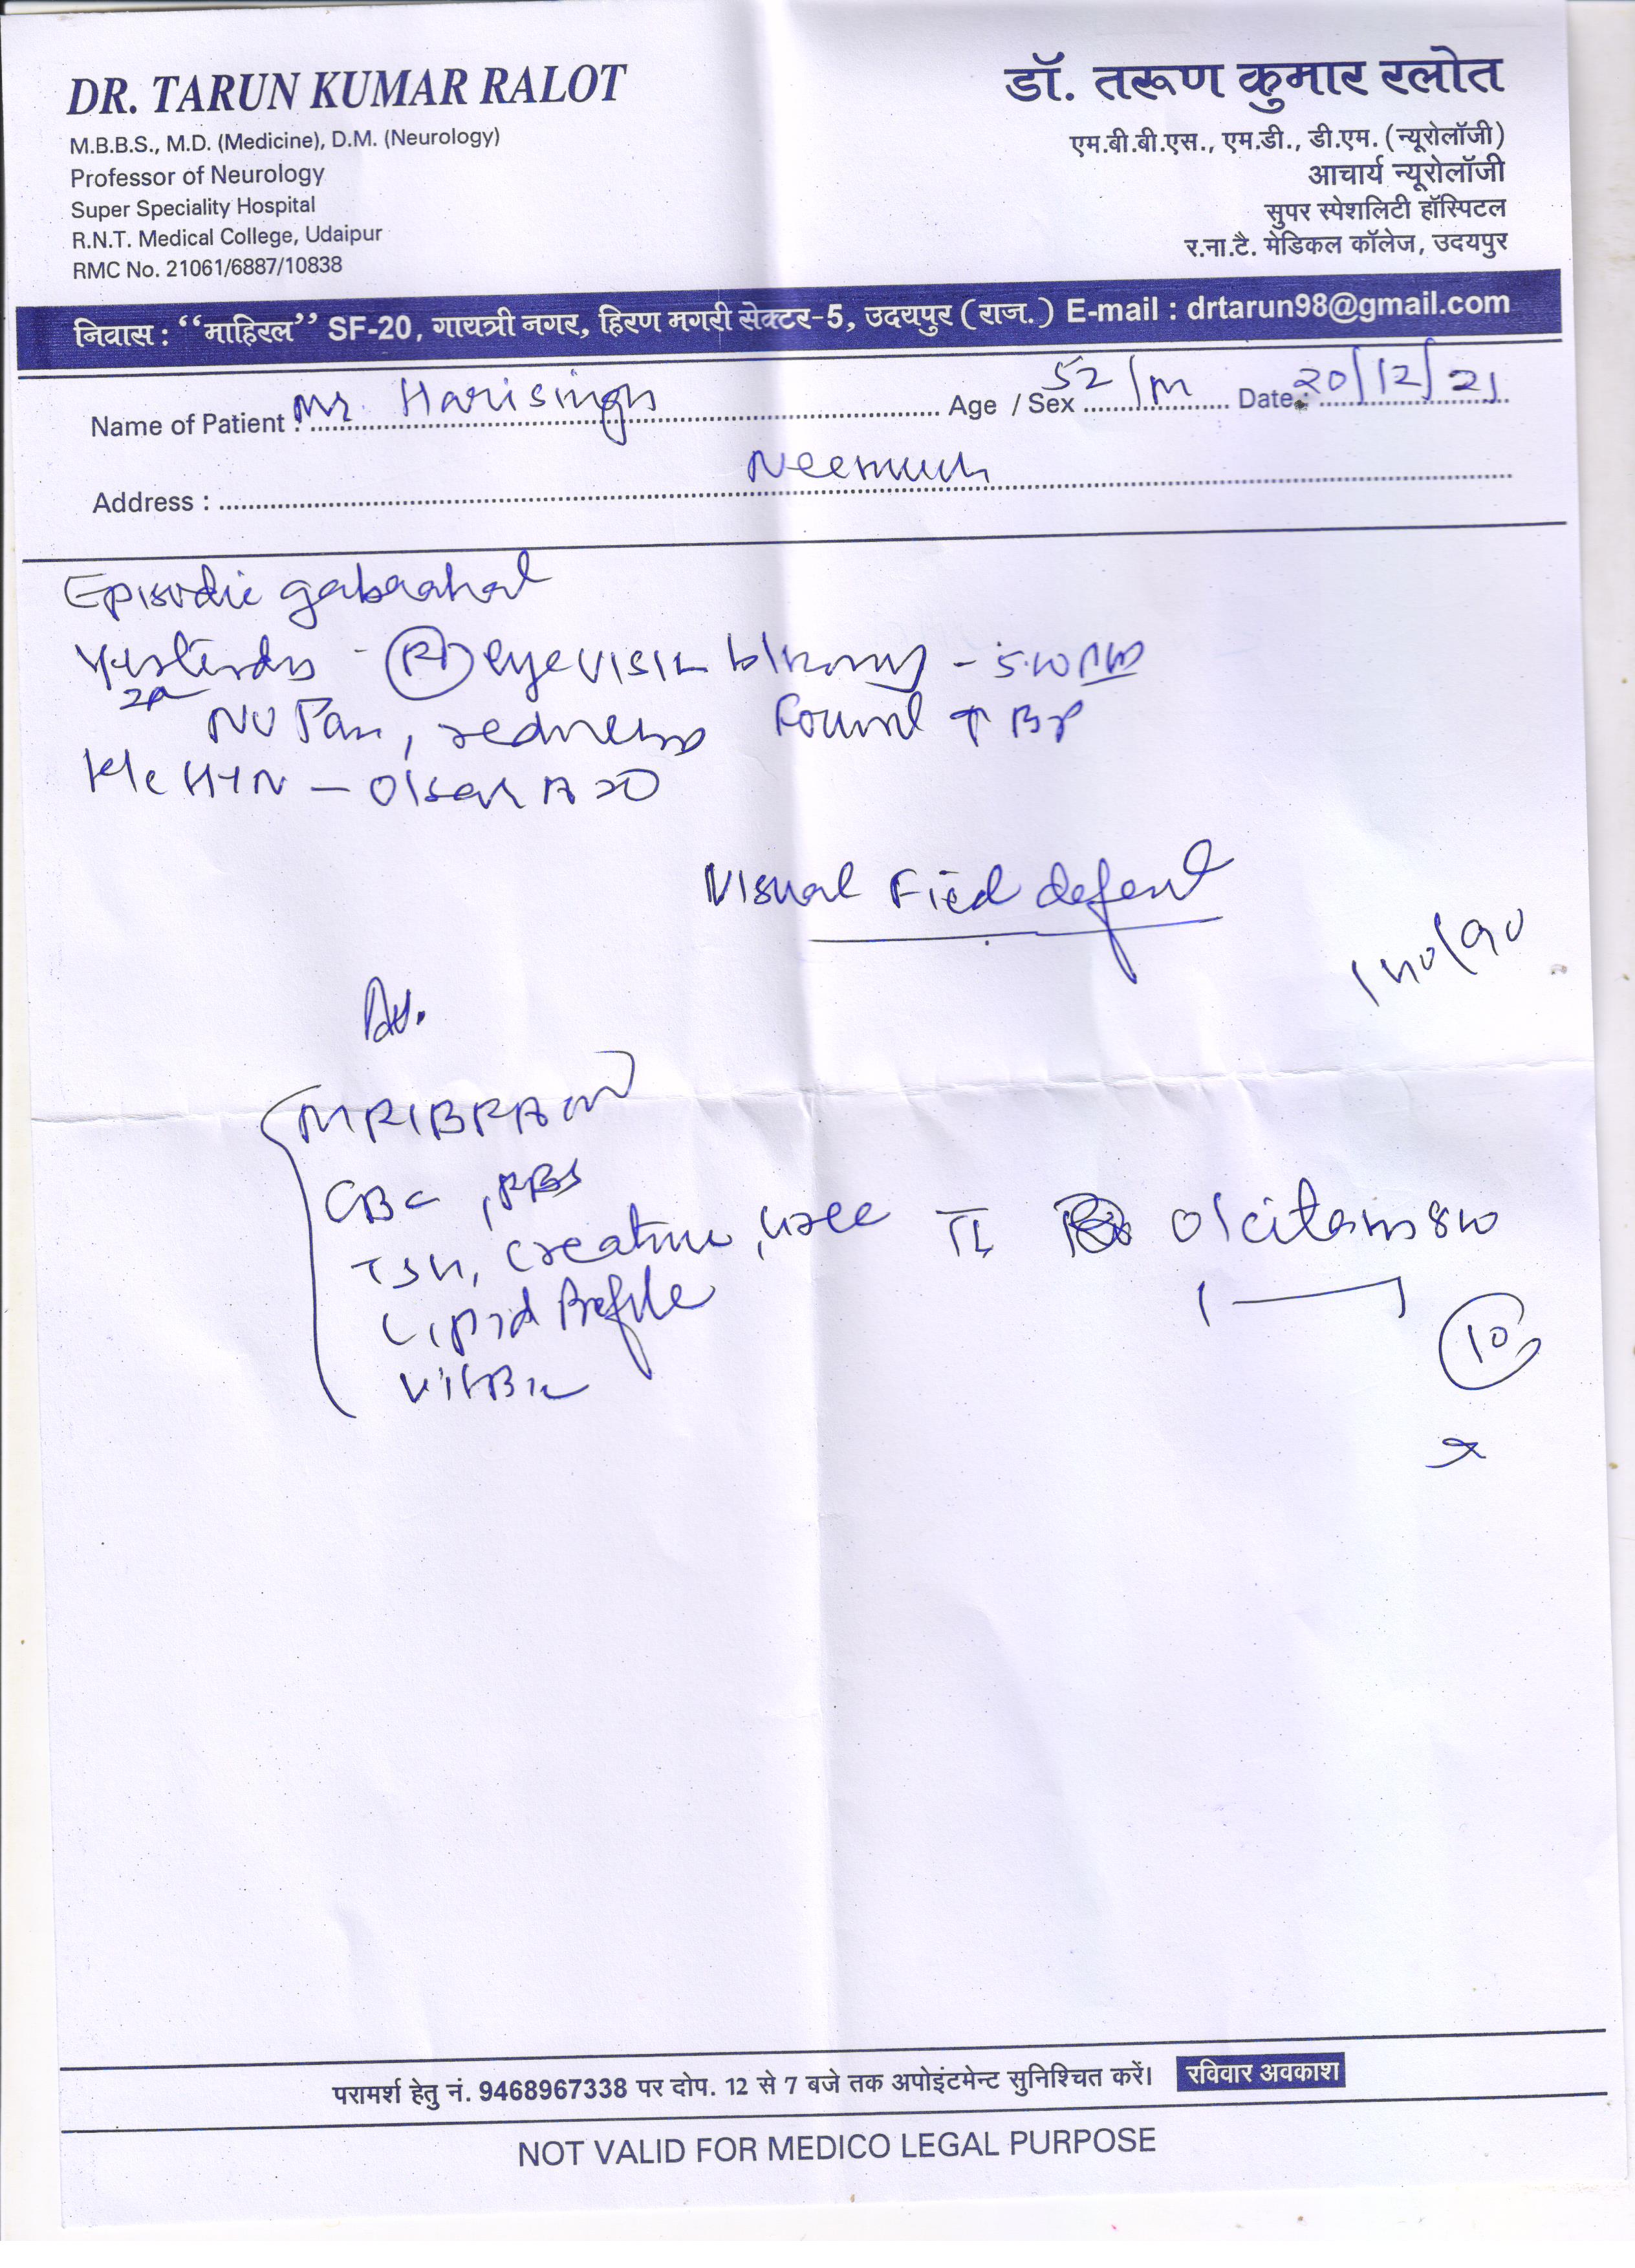 DR. TARUN KUMAR RALOT
M.B.B.S., M.D. (Medicine), D.M. (Neurology)
Professor of Neurology
Super Speciality Hospital
R.N.T. Medical College, Udaipur
RMC No. 21061/6887/10838
डॉ. तरूण कुमार रलोत
एम.बी.बी.एस., एम.डी., डी.एम. (न्यूरोलॉजी)
आचार्य न्यूरोलॉजी
सुपर स्पेशलिटी हॉस्पिटल
र.ना.टै. मेडिकल कॉलेज, उदयपुर
निवास : ‘‘माहिरल’’ SF-20, गायत्री नगर, हिरण मगरी सेक्टर-5, उदयपुर ( राज. ) E-mail : drtarun98@gmail.com
Name of Patient : Mr. Harisingh Age / Sex 52/M Date : 20/12/21
Address : Neemuch
Episodic gabrahat
Yesterday - (Rt) eye vision blurring -
No Pain, redness Found ↑ BP
K/c HTN -
Visual Field defect
140/90
Adv.
MRI BRAIN
CBC, RBS
TSH, Creatinine,
Lipid Profile
Vit B12
10
परामर्श हेतु नं. 9468967338 पर दोप. 12 से 7 बजे तक अपोइंटमेन्ट सुनिश्चित करें। रविवार अवकाश
NOT VALID FOR MEDICO LEGAL PURPOSE